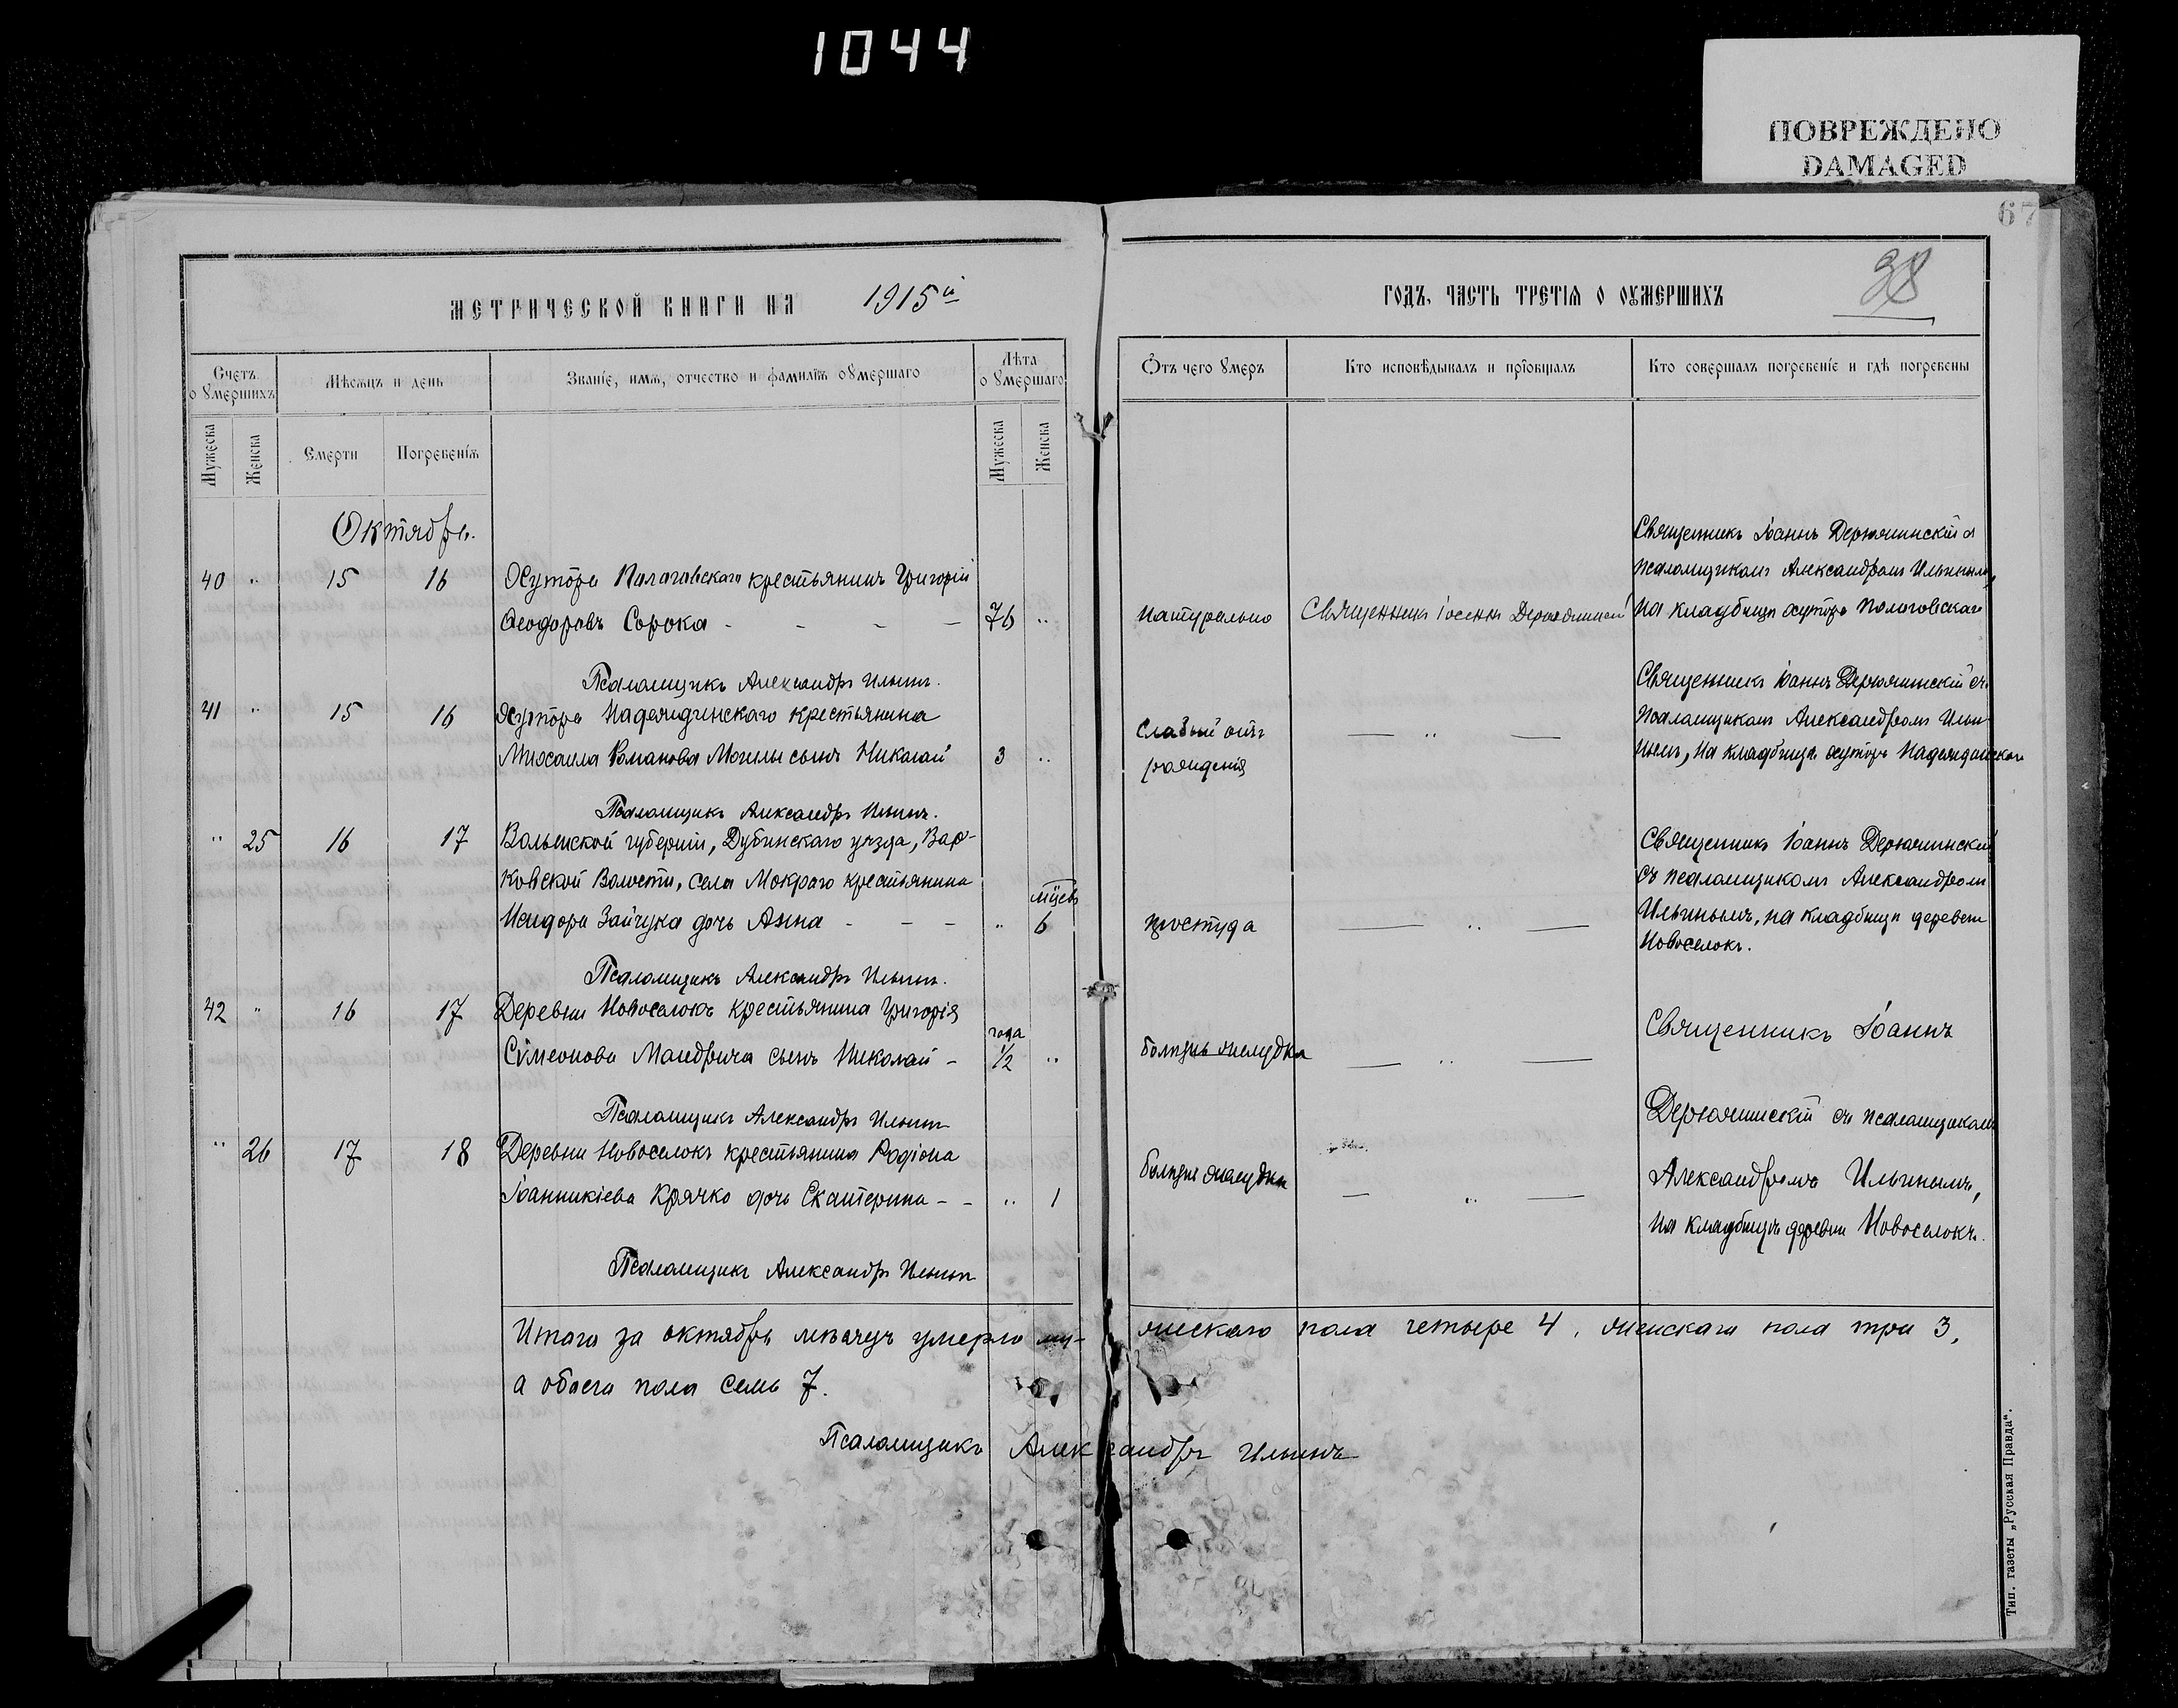 1044
ПОВРЕЖДЕНО
DAMAGED
67
38
МЕТРИЧЕСКОЙ КНИГИ НА 1915й
ГОДЪ, ЧАСТЬ ТРЕТІЯ О ОУМЕРШИХЪ
Счетъ о умершихъ
Мѣсяцъ и день
Званіе, имя, отчество и фамилія оумершаго
Лѣта о умершаго
Отъ чего умеръ
Кто исповѣдывалъ и пріобщалъ
Кто совершалъ погребеніе и гдѣ погребены
Мужеска
Женска
Смерти
Погребенія
Мужеска
Женска
Октябрь.
Священникъ Іоаннъ Дерюжинскій съ
40 " 15 16 Хутора Пологовскаго крестьянинъ Григорій
псаломщикомъ Александромъ Ильинымъ,
Ѳеодоровъ Сорока - - - - 76 " натурально Священникъ Іоаннъ Дерюжинскій на кладбищѣ хутора Пологовскаго
Псаломщикъ Александръ Ильинъ.
Священникъ Іоаннъ Дерюжинскій съ
41 " 15 16 Хутора Надеждинскаго крестьянина
псаломщикомъ Александромъ Ильи-
Михаила Романова Могилы сынъ Николай 3 " слабый отъ рожденія — " —
нымъ, на кладбищѣ хутора Надеждинскаго
Псаломщикъ Александръ Ильинъ.
" 25 16 17 Волынской губерніи, Дубинскаго уѣзда, Вар-
Священникъ Іоаннъ Дерюжинскій
ковской Волости, села Мокраго крестьянина
мѣсяц.
съ псаломщикомъ Александромъ
Исидора Зайчука дочь Анна - - - " 6 простуда — " —
Ильинымъ, на кладбищѣ деревни
Новоселокъ.
Псаломщикъ Александръ Ильинъ.
42 " 16 17 Деревни Новоселокъ крестьянина Григорія
Священникъ Іоаннъ
года
Сѵмеонова Мандрыча сынъ Николай - 1/2 " болѣзнь желудка — " —
Дерюжинскій съ псаломщикомъ
Псаломщикъ Александръ Ильинъ
" 26 17 18 Деревни Новоселокъ крестьянина Родіона
Іоанникіева Крячко дочь Екатерина - - " 1 болѣзнь желудка — " —
Александромъ Ильинымъ,
на кладбищѣ деревни Новоселокъ.
Псаломщикъ Александръ Ильинъ
Итого за октябрь мѣсяцъ умерло му- жескаго пола четыре 4, женскаго пола три 3,
а обоего пола семь 7.
Псаломщикъ Александръ Ильинъ
Тип. газеты „Русская Правда".